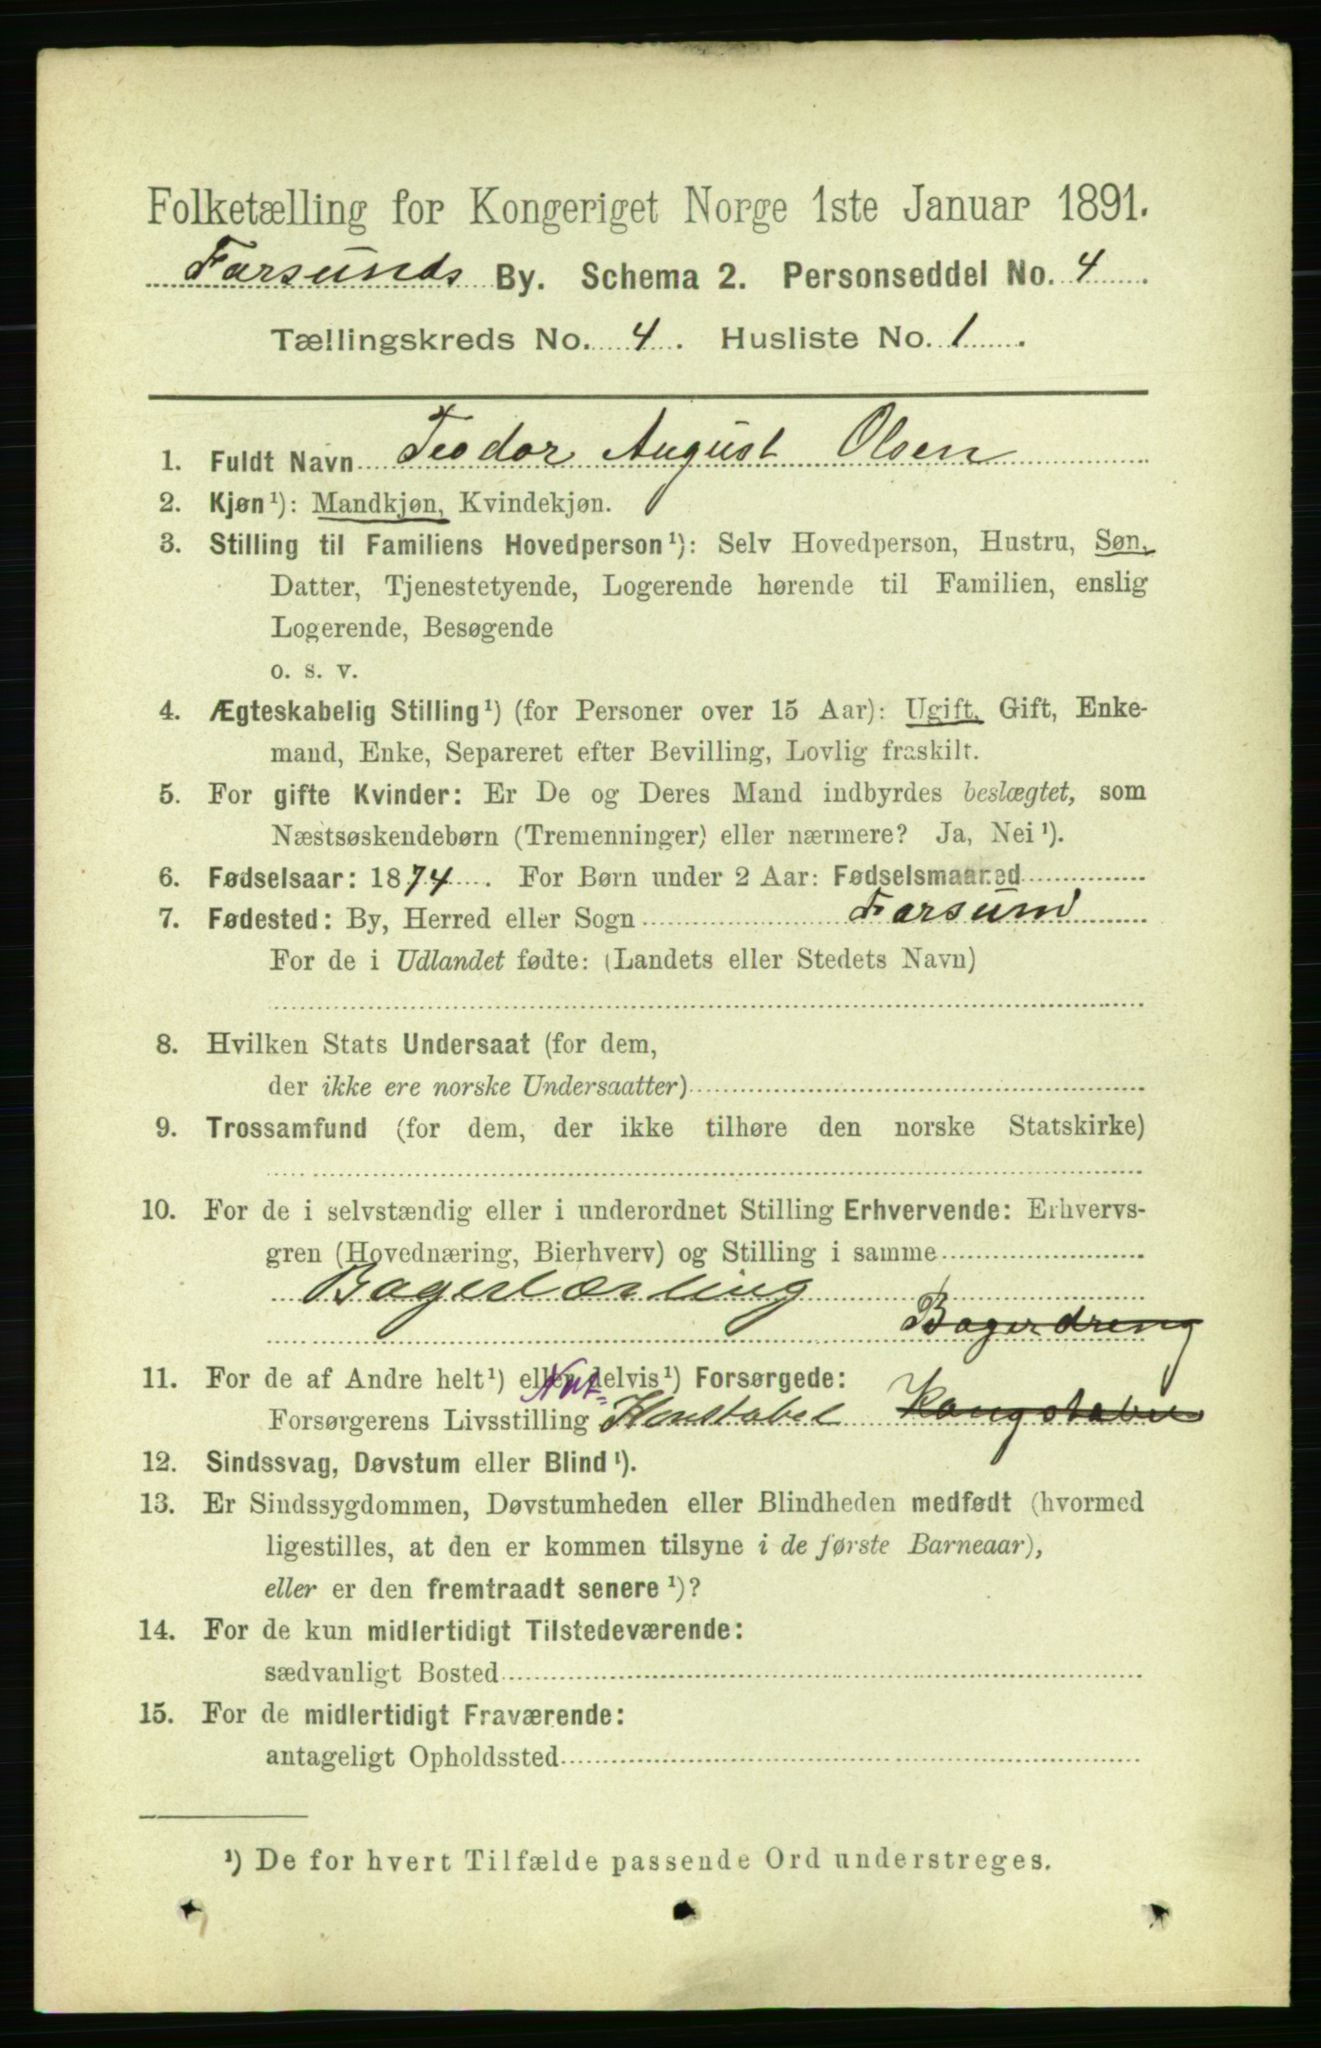 Folketælling for Kongeriget Norge 1ste Januar 1891.
Farsunds By. Schema 2. Personseddel No. 4
Tællingskreds No. 4. Husliste No. 1
1. Fuldt Navn Teodor August Olsen
2. Kjøn¹): Mandkjøn, Kvindekjøn.
3. Stilling til Familiens Hovedperson¹): Selv Hovedperson, Hustru, Søn,
Datter, Tjenestetyende, Logerende hørende til Familien, enslig
Logerende, Besøgende
o. s. v.
4. Ægteskabelig Stilling¹) (for Personer over 15 Aar): Ugift, Gift, Enke-
mand, Enke, Separeret efter Bevilling, Lovlig fraskilt.
5. For gifte Kvinder: Er De og Deres Mand indbyrdes beslægtet, som
Næstsøskendebørn (Tremenninger) eller nærmere? Ja, Nei¹).
6. Fødselsaar: 1874. For Børn under 2 Aar: Fødselsmaaned
7. Fødested: By, Herred eller Sogn Farsund
For de i Udlandet fødte: (Landets eller Stedets Navn)
8. Hvilken Stats Undersaat (for dem,
der ikke ere norske Undersaatter)
9. Trossamfund (for dem, der ikke tilhøre den norske Statskirke)
10. For de i selvstændig eller i underordnet Stilling Erhvervende: Erhvervs-
gren (Hovednæring, Bierhverv) og Stilling i samme
Bagerlærling
Bagerdreng
11. For de af Andre helt¹) eller delvis¹) Forsørgede:
Forsørgerens Livsstilling Nat= Konstabel Kongstabel
12. Sindssvag, Døvstum eller Blind¹).
13. Er Sindssygdommen, Døvstumheden eller Blindheden medfødt (hvormed
ligestilles, at den er kommen tilsyne i de første Barneaar),
eller er den fremtraadt senere¹)?
14. For de kun midlertidigt Tilstedeværende:
sædvanligt Bosted
15. For de midlertidigt Fraværende:
antageligt Opholdssted
¹) De for hvert Tilfælde passende Ord understreges.